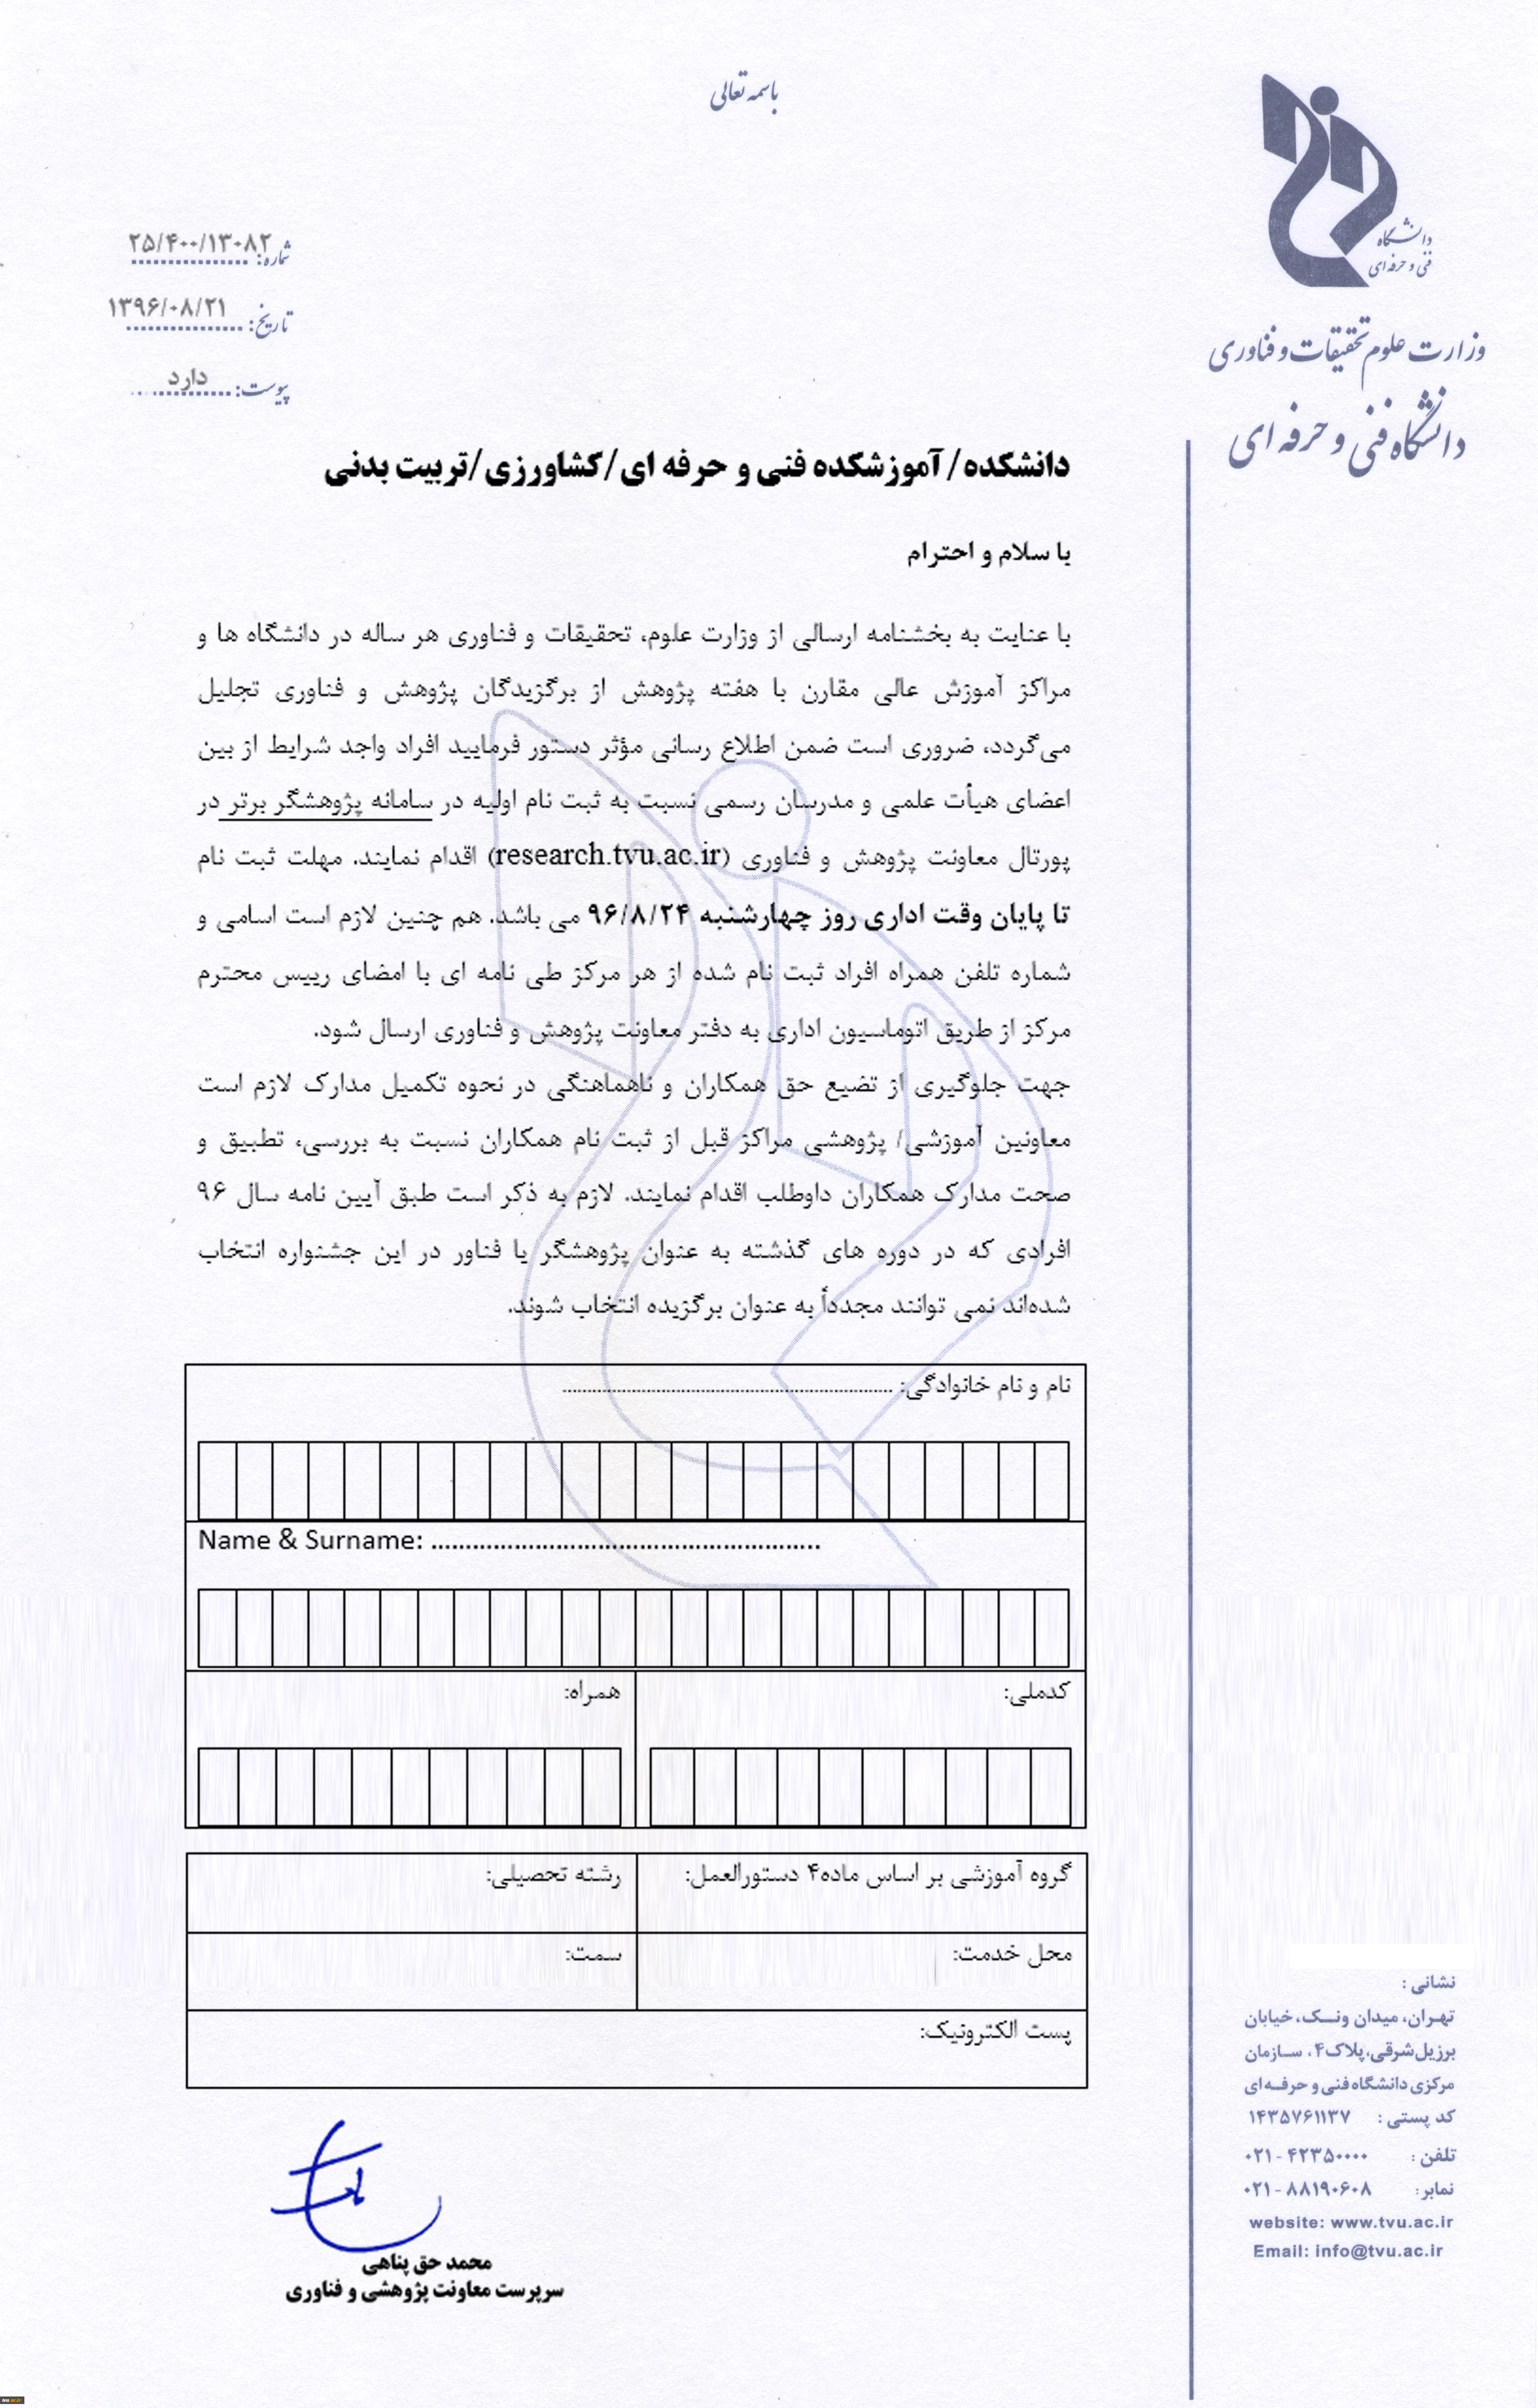 باسمه تعالی
دانشگاه
فنی و حرفه ای
وزارت علوم تحقیقات و فناوری
دانشگاه فنی و حرفه ای
شماره: ۲۵/۴۰۰/۱۳۰۸۲
تاریخ: ۱۳۹۶/۰۸/۲۱
پیوست: دارد
دانشکده/ آموزشکده فنی و حرفه ای/کشاورزی/تربیت بدنی
با سلام و احترام
با عنایت به بخشنامه ارسالی از وزارت علوم، تحقیقات و فناوری هر ساله در دانشگاه ها و
مراکز آموزش عالی مقارن با هفته پژوهش از برگزیدگان پژوهش و فناوری تجلیل
می‌گردد، ضروری است ضمن اطلاع رسانی مؤثر دستور فرمایید افراد واجد شرایط از بین
اعضای هیأت علمی و مدرسان رسمی نسبت به ثبت نام اولیه در سامانه پژوهشگر برتر در
پورتال معاونت پژوهش و فناوری (research.tvu.ac.ir) اقدام نمایند. مهلت ثبت نام
تا پایان وقت اداری روز چهارشنبه ۹۶/۸/۲۴ می باشد. هم چنین لازم است اسامی و
شماره تلفن همراه افراد ثبت نام شده از هر مرکز طی نامه ای با امضای رییس محترم
مرکز از طریق اتوماسیون اداری به دفتر معاونت پژوهش و فناوری ارسال شود.
جهت جلوگیری از تضیع حق همکاران و ناهماهنگی در نحوه تکمیل مدارک لازم است
معاونین آموزشی/ پژوهشی مراکز قبل از ثبت نام همکاران نسبت به بررسی، تطبیق و
صحت مدارک همکاران داوطلب اقدام نمایند. لازم به ذکر است طبق آیین نامه سال ۹۶
افرادی که در دوره های گذشته به عنوان پژوهشگر یا فناور در این جشنواره انتخاب
شده‌اند نمی توانند مجدداً به عنوان برگزیده انتخاب شوند.
نام و نام خانوادگی: ..................................................................
Name & Surname: .........................................................
کدملی:
همراه:
گروه آموزشی بر اساس ماده۴ دستورالعمل:
رشته تحصیلی:
محل خدمت:
سمت:
پست الکترونیک:
محمد حق پناهی
سرپرست معاونت پژوهشی و فناوری
نشانی :
تهران، میدان ونک، خیابان
برزیل شرقی، پلاک۴، سازمان
مرکزی دانشگاه فنی و حرفه ای
کد پستی : ۱۴۳۵۷۶۱۱۳۷
تلفن : ۰۲۱-۴۲۳۵۰۰۰۰
نمابر: ۰۲۱-۸۸۱۹۰۶۰۸
website: www.tvu.ac.ir
Email: info@tvu.ac.ir